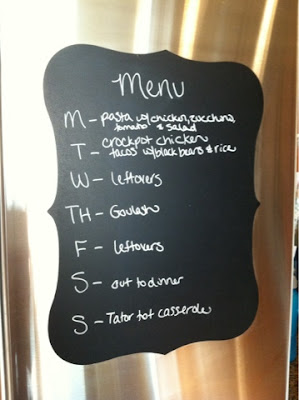 Menu
M - pasta w/chicken, zucchini,
tomato & salad
T - crockpot chicken
tacos w/black beans & rice
W - leftovers
TH - Goulash
F - leftovers
S - out to dinner
S - Tator tot casserole